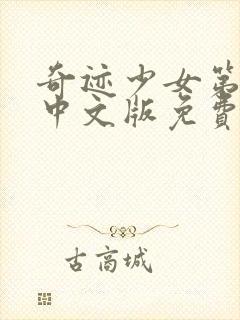 奇迹少女第
中文版免费
古高城